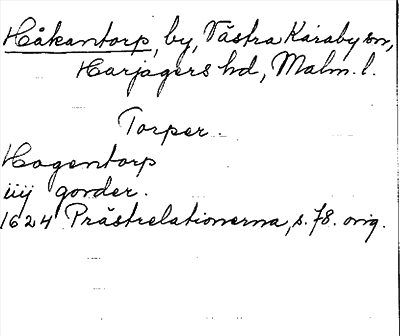 Håkantorp, by, Västra Karaby sn,
Harjagers hd, Malm. l.
Torper.
Hogentorp
iiij gorder.
1624 Prästrelationerna, s. 78. orig.